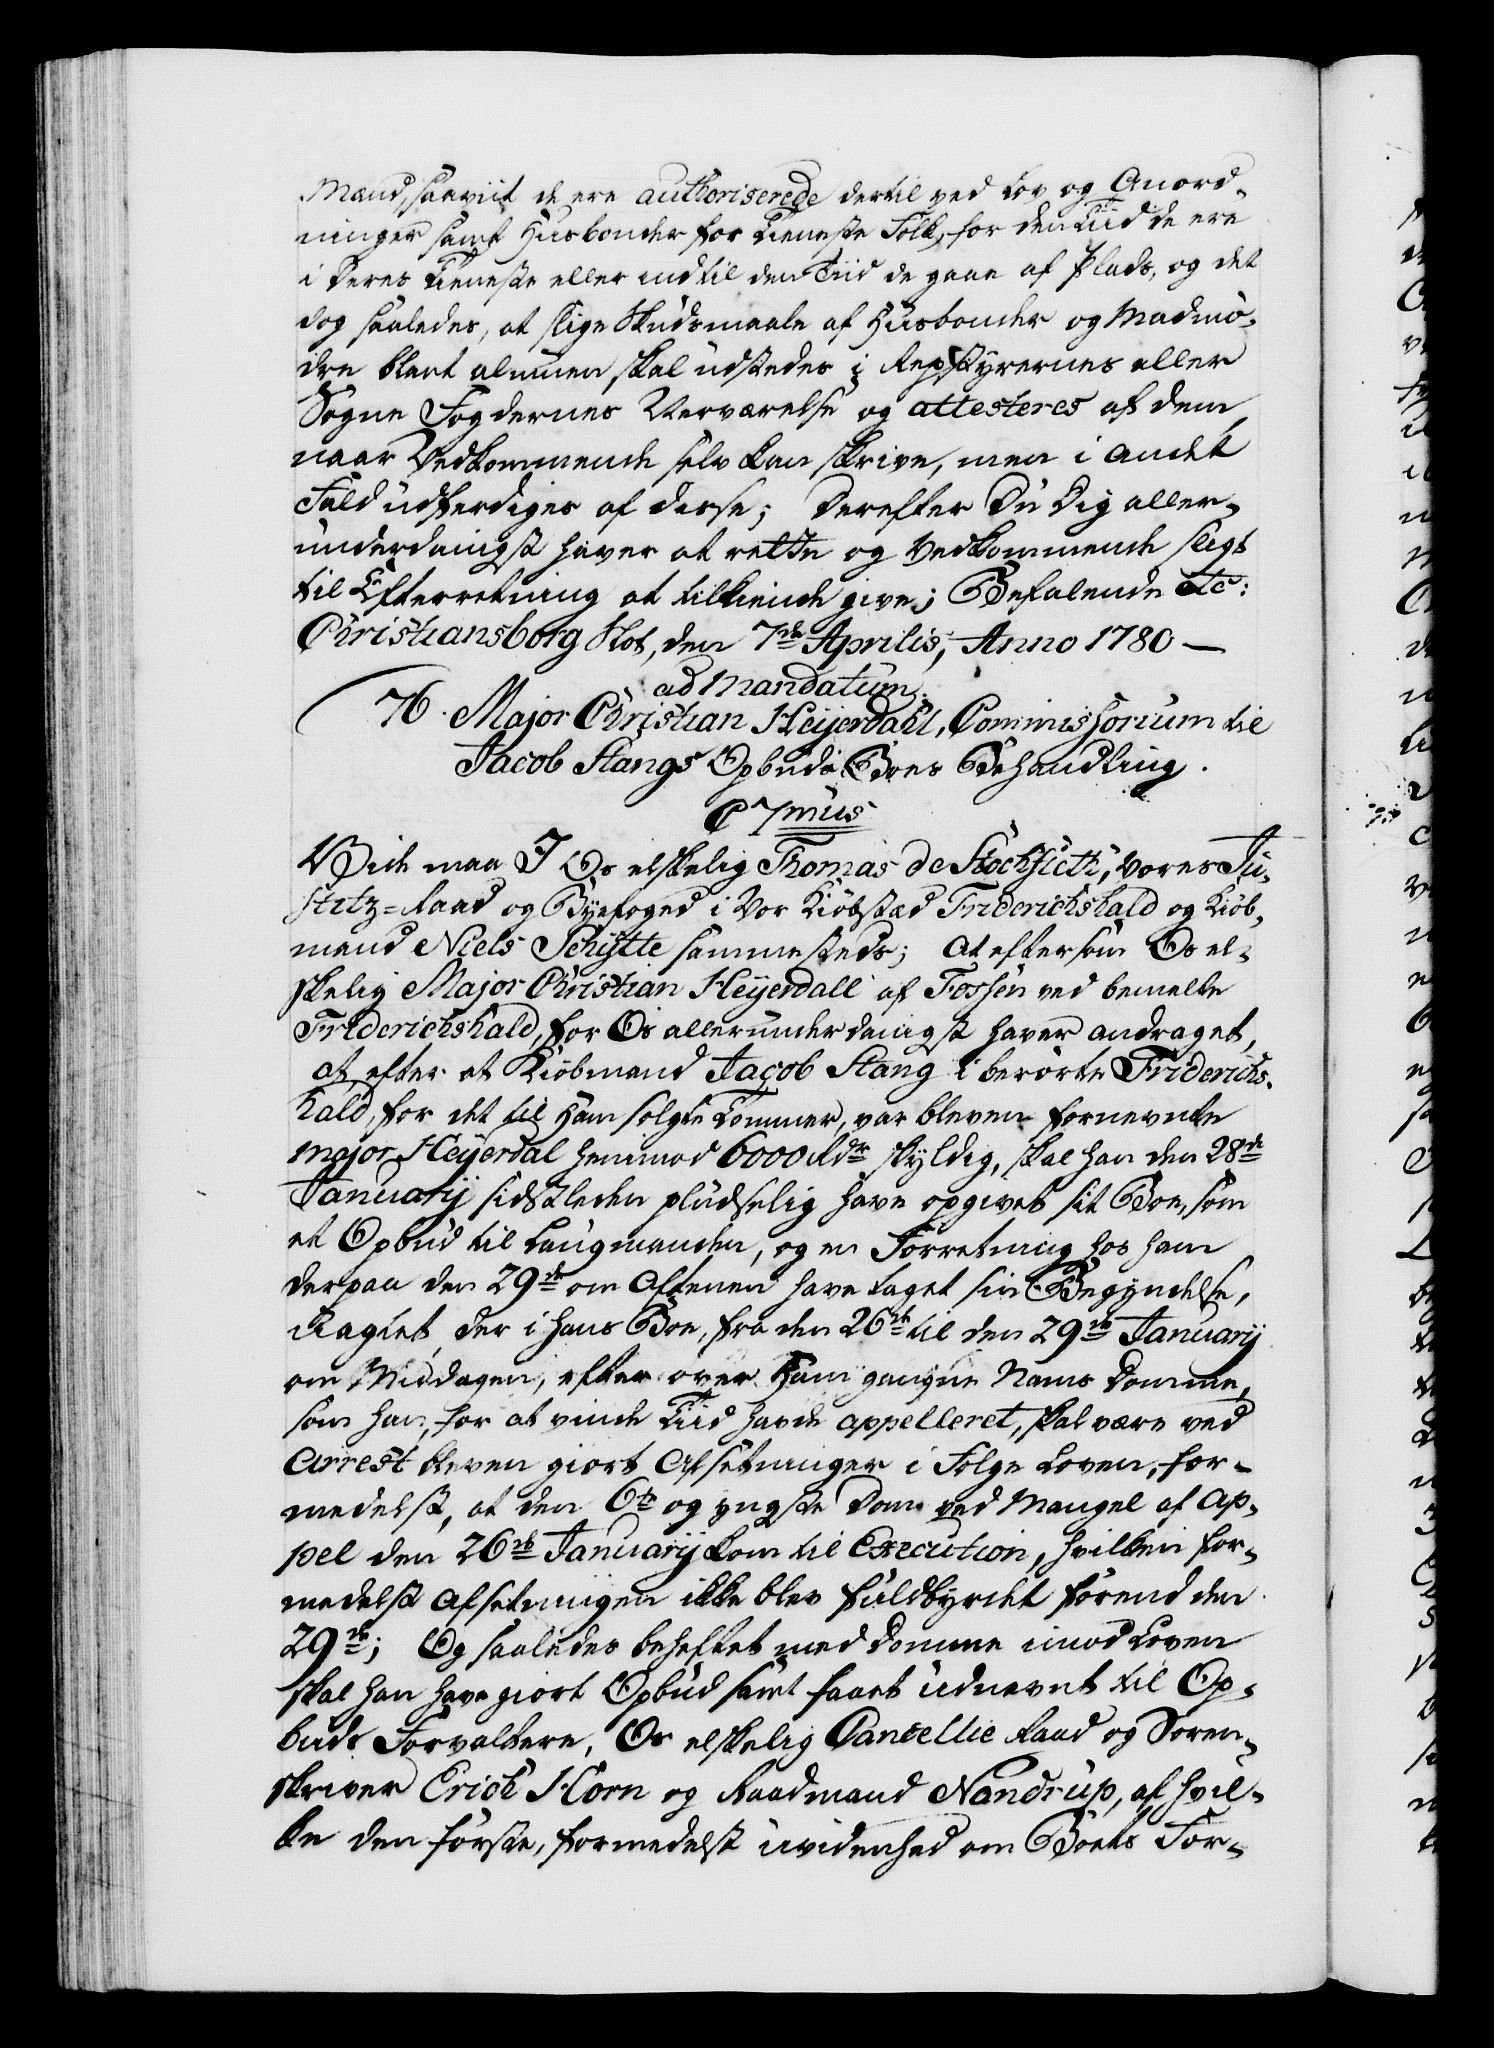 Mænd, saaviit de ere authoriserede dertil ved Lov og Anord-
ninger samt Husbonder for Tieneste Folk, for den Tiid de ere
i deres Tieneste eller indtil den Tiid de gaae af Plads, og det
dog saaledes, at slige Skudsmaale af Husbonder og Madmo-
dre blant almuen, skal udstedes i Repstyrernes eller
Sogne Fogdernes Nerværelse og attesteres af dem,
naar Vedkommende selv kan skrive, men i andet
Fald udferdiges af disse; Derefter Du Dig aller-
underdanigst haver at rette og Vedkommende sligt
til Efterretning at tilkiende give; Befalende etc:
Christiansborg Slot, den 7de Aprilis, Anno 1780 —
ad Mandatum.
76. Major Christian Heijerdahl, Commissorium til
Jacob Stangs Opbuds Boes Behandling.
C 7mus
Viide maa I Os elskelig Thomas de Stockfleth, Vores Ju-
stitz-Raad og Byefoged i Vor Kiøbstæd Friderichshald og Kiøb-
mand Niels Schytte sammesteds; At eftersom Os el-
skelig Major Christian Heyerdall af Fossen ved bemelte
Friderichshald, for Os allerunderdanigst haver andraget,
at efter at Kiøbmand Jacob Stang i berørte Friderichs-
hald, for det til Ham solgte Tømmer, var bleven fornevnte
Major Heyerdal henimod 6000 Rdr skyldig, skal han den 28de
Januarij sidstleden pludselig have opgivet sit Boe, som
et Opbud til Laugmanden, og en Forretning hos ham
derpaa den 29de om Aftenen have taget sin Begyndelse,
uagtet, der i hans Boe, fra den 26de til den 29de Januarij
om Middagen, efter over Ham gangne Nams Domme,
som han, for at vinde Tiid havde appelleret, skal være ved
Arrest bleven giort Afsetninger i Følge Loven, for-
medelst, at den 6te og yngste Dom ved Mangel af Ap-
pel den 26de Januarij kom til Execution, hvilken for-
medelst Afsetningen ikke blev fuldbyrdet førend den
29de; Og saaledes beheftet med Domme imod Loven
skal han have giort Opbud samt faaet udnevnt til Op-
buds Forvaltere, Os elskelig Cancellie Raad og Soren-
skriver Erich Horn og Raadmand Nandrup, af hvil-
ke den første, formedelst uvidenhed om Boets For-